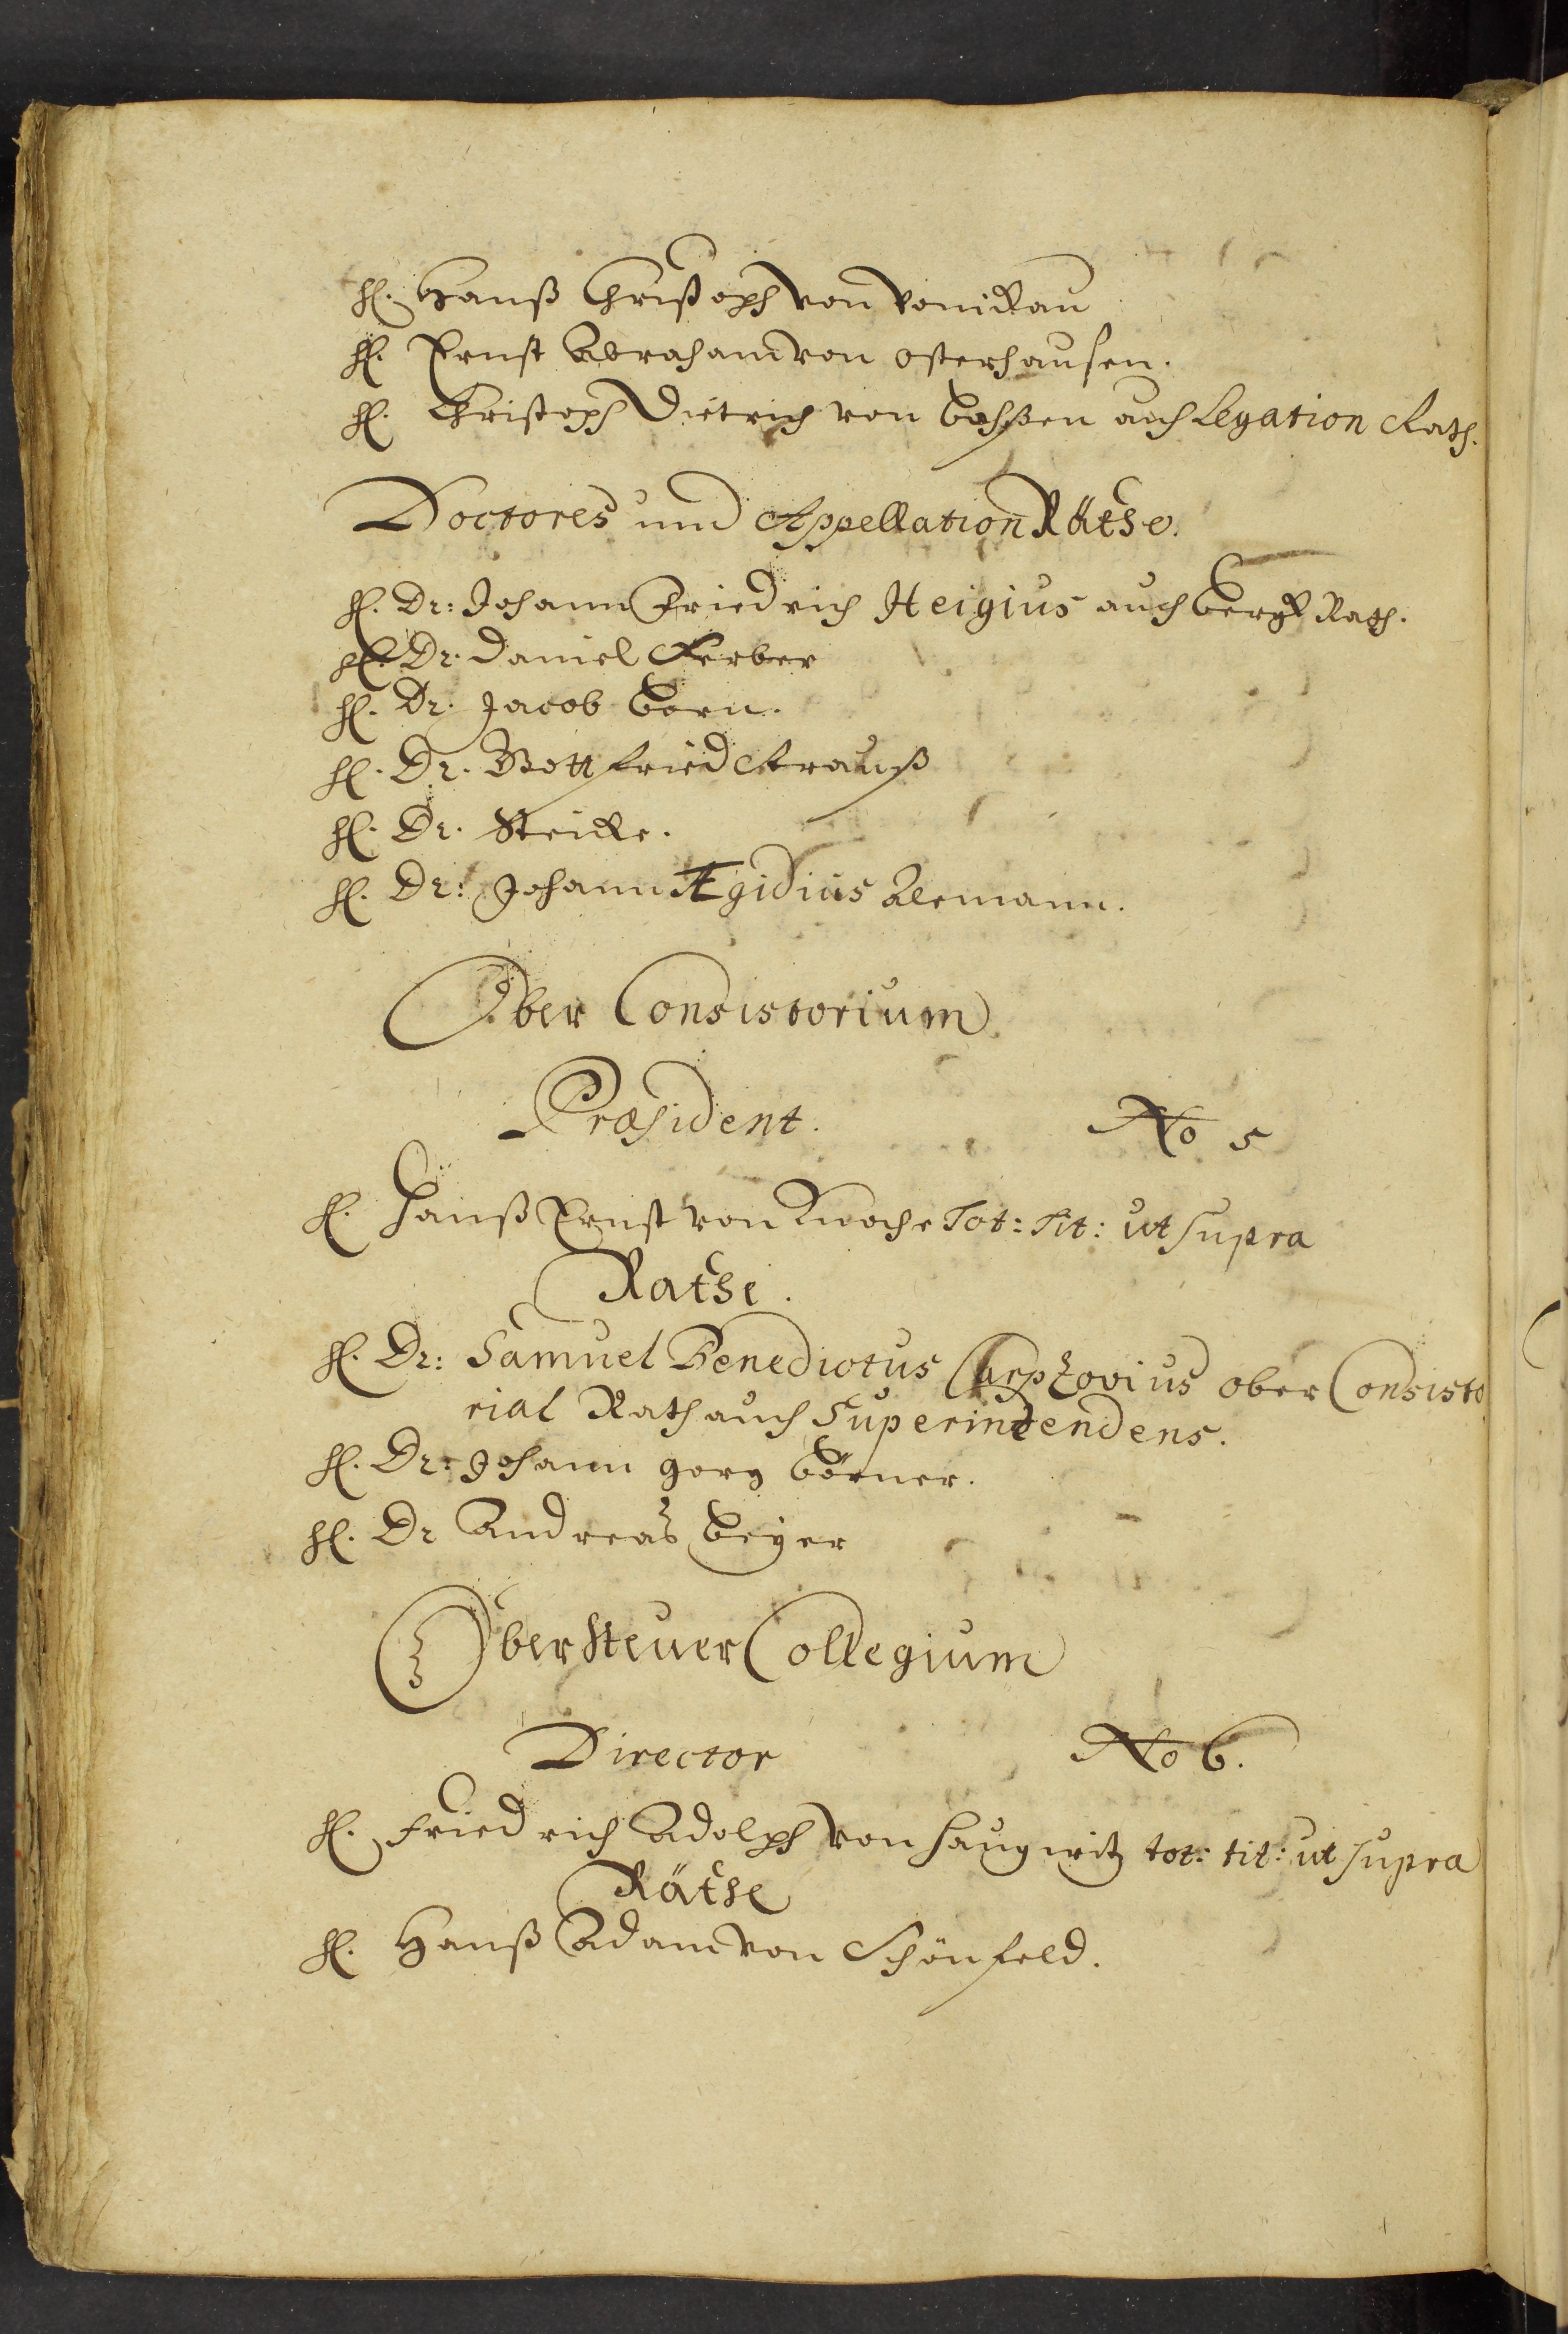 H. Hanß Christoph von Ponickau
H. Ernst Abraham von Osterhausen.
H. Christoph Dietrich von Bohßen auch Legation Rath.
Doctores und Appellation Räthe.
H. Dr: Johann Friedrich Heigius auch Bergk Rath.
H. Dr. Daniel Ferber
H. Dr. Jacob Born.
H. Dr. Gottfried Strauß
H. Dr. Steicke.
H. Dr: Johann Ægidius Alemann.
Ober Consistorium
Præsident. No 5
H. Hanß Ernst von Knoche Tot: Tit: ut supra
Rathe.
H. Dr: Samuel Benedictus Carpzovius ober Consisto
rial Rath auch Superintendens.
H. Dr: Johann Georg Börner.
H. Dr Andreas Beyer
Ober Steuer Collegium
Director No 6.
H. Friedrich Adolph von Haugwitz tot: tit: ut supra
Räthe
H. Hanß Adam von Schönfeld.